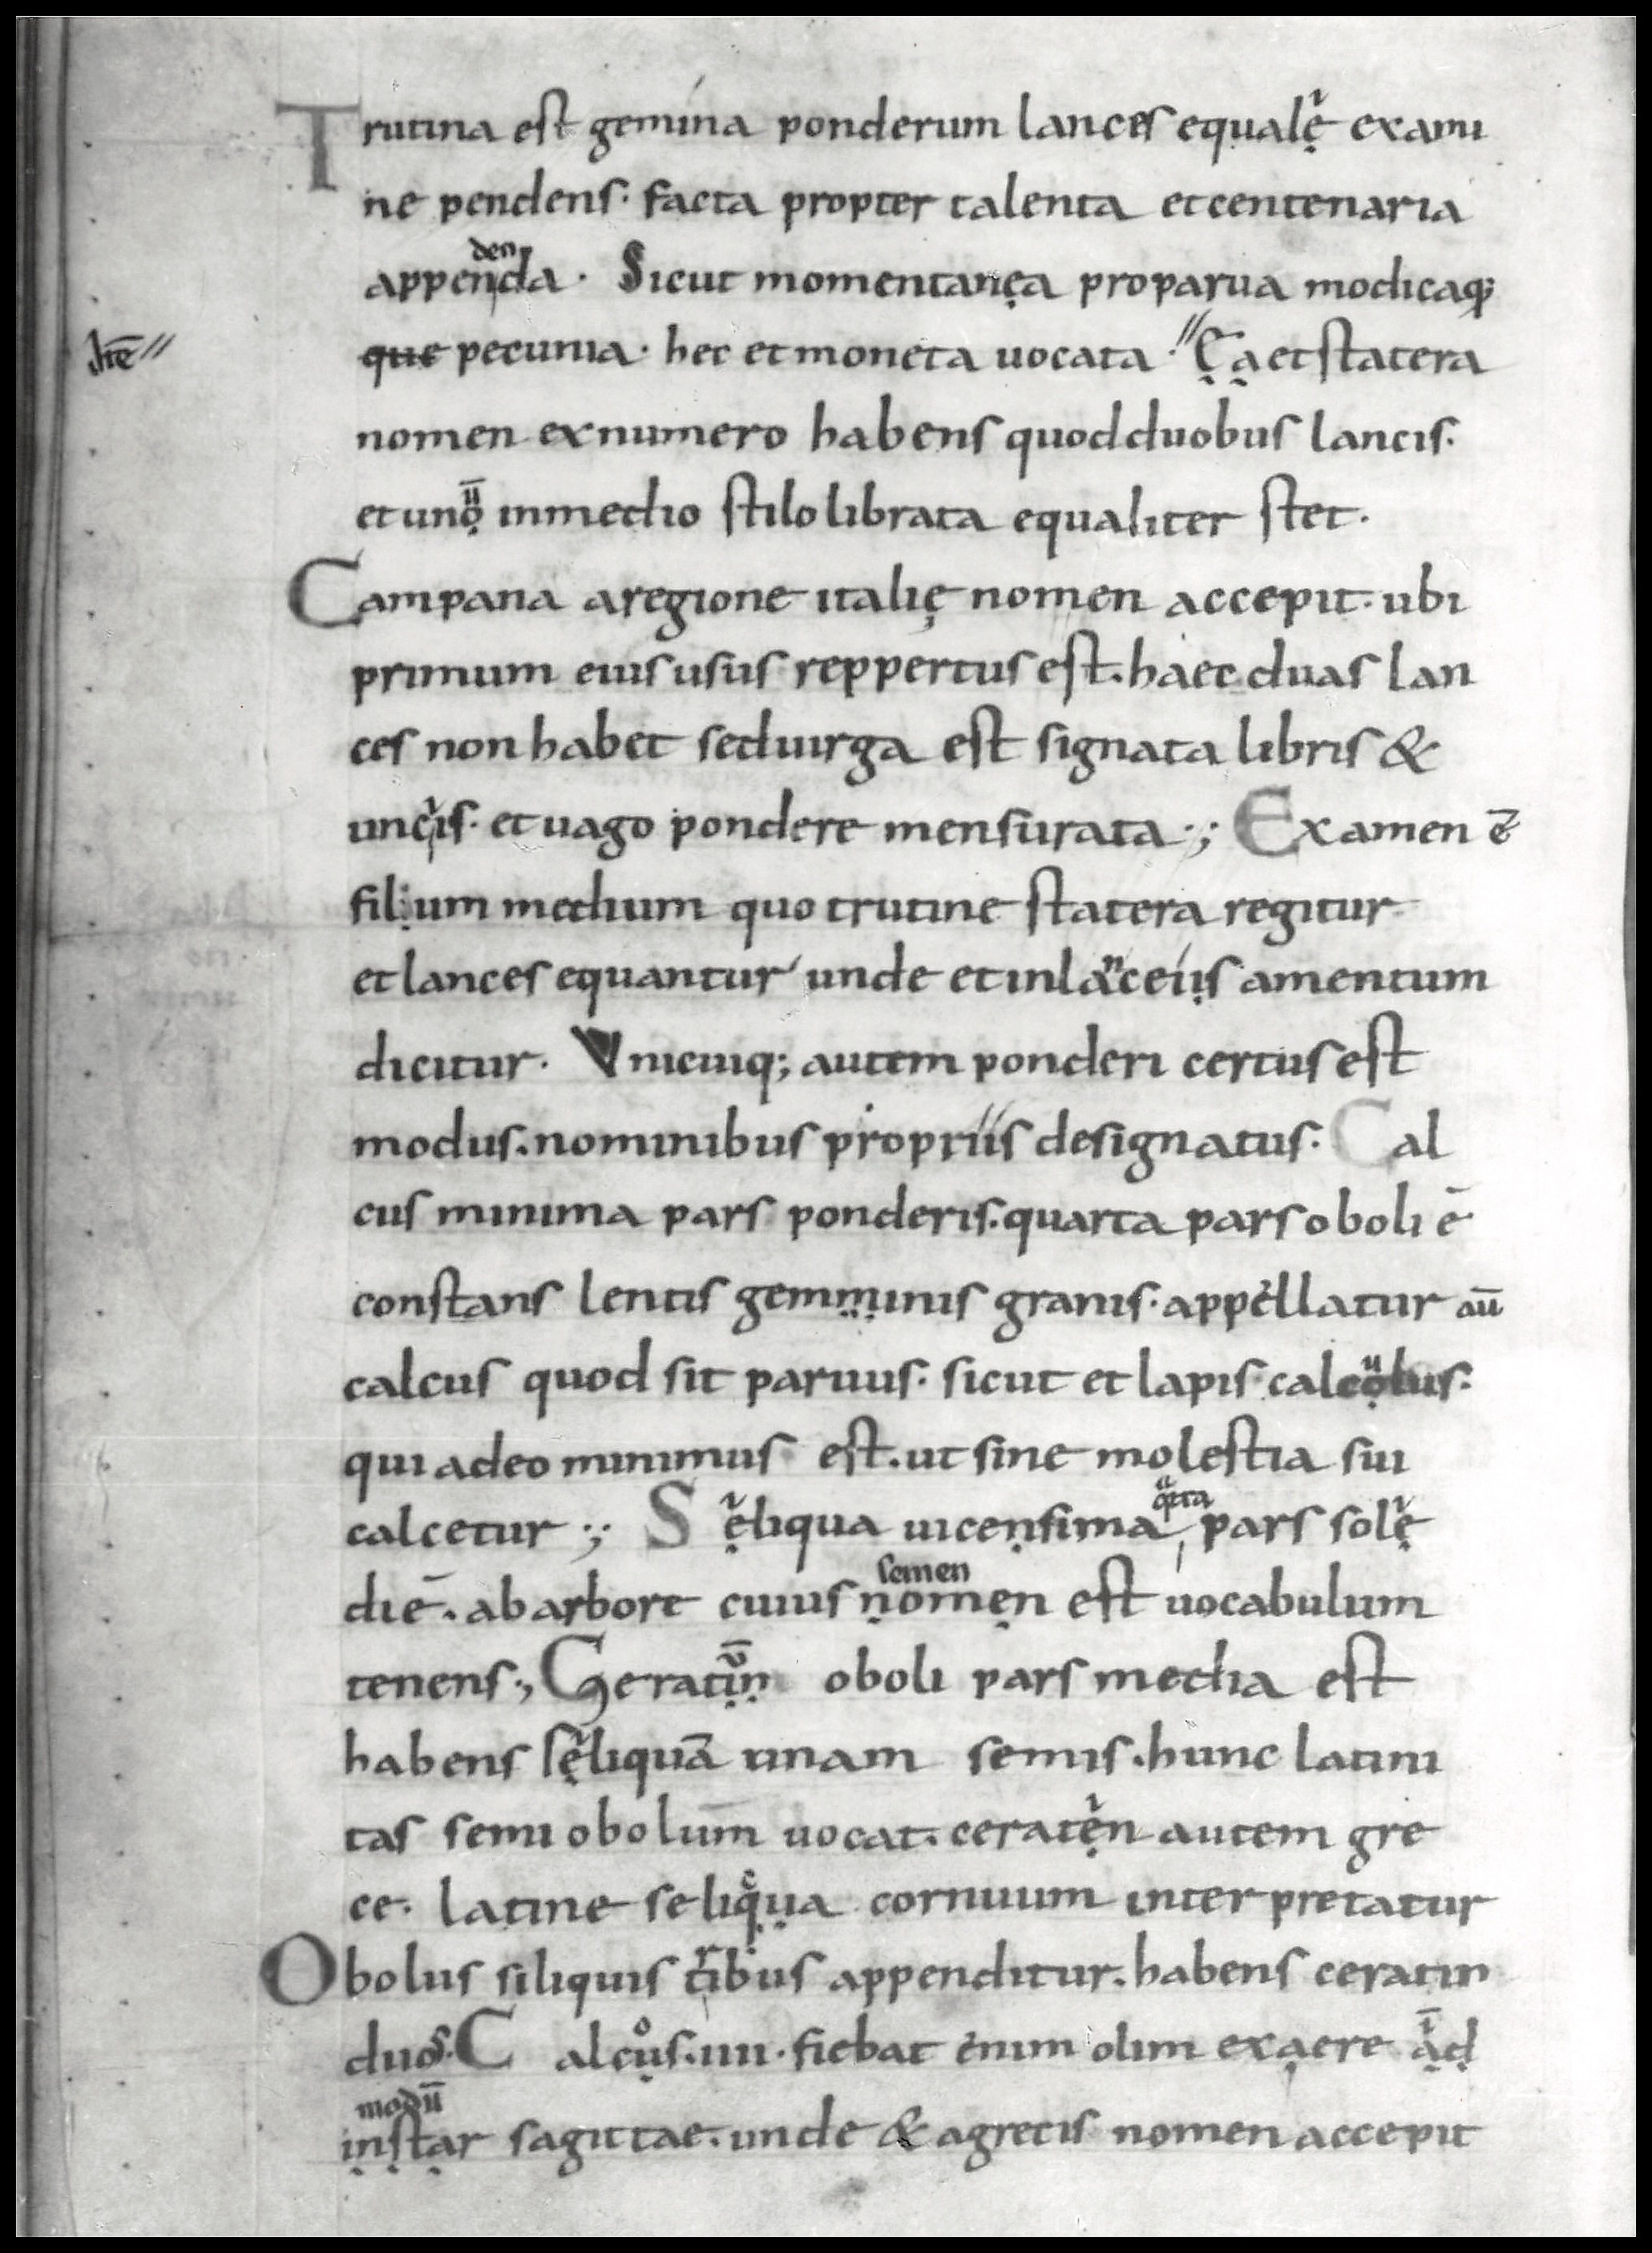 Trutina est gemina ponderum lances equalẹi exami
ne pendens· facta propter talenta et centenaria
den
appenda· Sicut momentanęa pro parua modicaq;
hęc que pecunia· hec et moneta uocata·" Ęa et statera
nomen ex numero habens quod duobus lancis·
et unọū in medio stilo librata equaliter stet·
Campana a regione italię nomen accepit· ubi
primum eius usus reppertus est. haec duas lan
ces non habet sed uirga est signata libris &
unciis· et uago pondere mensurata·; Examen ē
filịum medium quo trutine statera regitur
et lances equantur unde et in lanceịis amentum
dicitur· Vnicuiq; autem ponderi certus est
modus. nominibus propriis designatus· Cal
cus minima pars ponderis. quarta pars oboli ē
constans lentis gemṃinis granis· appellatur aū
calcus quod sit paruus· sicut et lapis calcọulus·
qui adeo minimus est. ut sine molestia sui
qrta
calcetur ·; Sẹiliqua uicenṣima pars solẹi
semen
diē. ab arbore cuius ṇomẹṇ est uocabulum
tenens·, Ceratịṇū oboli pars media est
habens sẹiliquā unam semis. hunc latini
tas semiobolum uocat. ceratẹin autem gre
ce· latine seliqua cornuum interpretatur
Obolus siliquis tribus appenditur. habens ceratin
duos· Calcọus·iiii· fiebat enim olim ex aere ạḍ
modū
iṇṣtạr sagittae. unde & a grecis nomen accepit